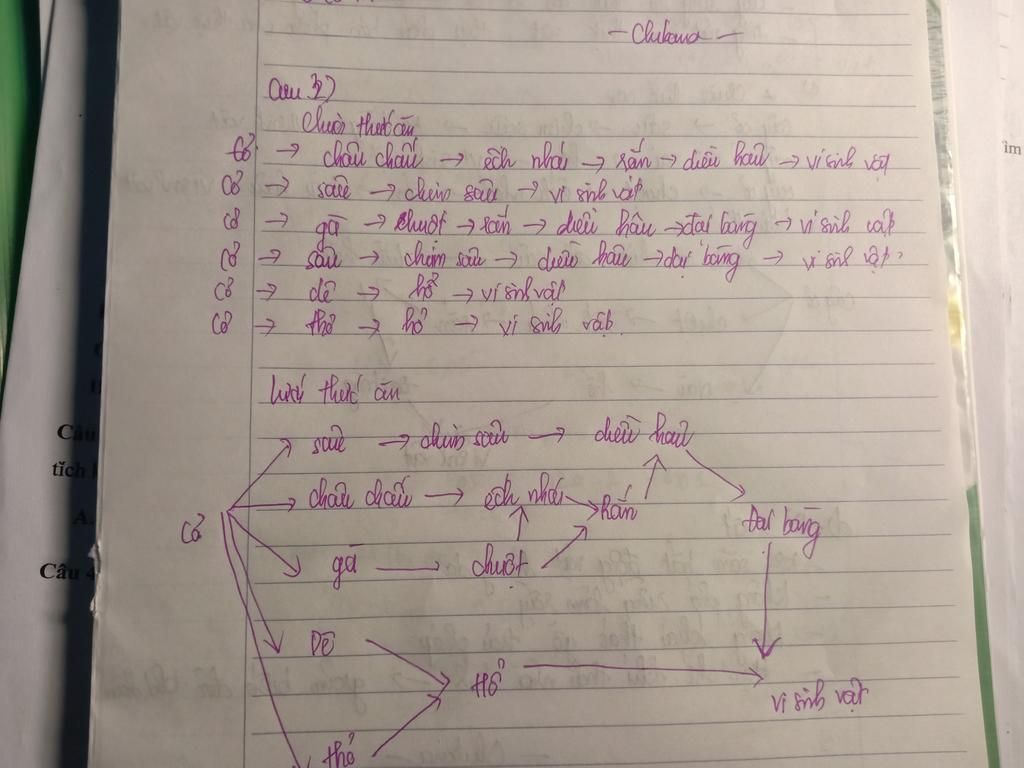 Câu 3)
Chuỗi thức ăn
Cỏ → châu chấu → ếch nhái → rắn → diều hâu → vi sinh vật
Cỏ → sâu → chim sâu → vi sinh vật
Cỏ → gà → chuột → rắn → diều hâu → đại bàng → vi sinh vật
Cỏ → sâu → chim sâu → diều hâu → đại bàng → vi sinh vật
Cỏ → dê → hổ → vi sinh vật
Cỏ → thỏ → hổ → vi sinh vật.
lưới thức ăn
sâu → chim sâu → diều hâu
châu chấu → ếch nhái → rắn
Cỏ
Đại bàng
gà → chuột
Dê
Hổ
vi sinh vật
thỏ
Câu
tích
A.
Câu 4